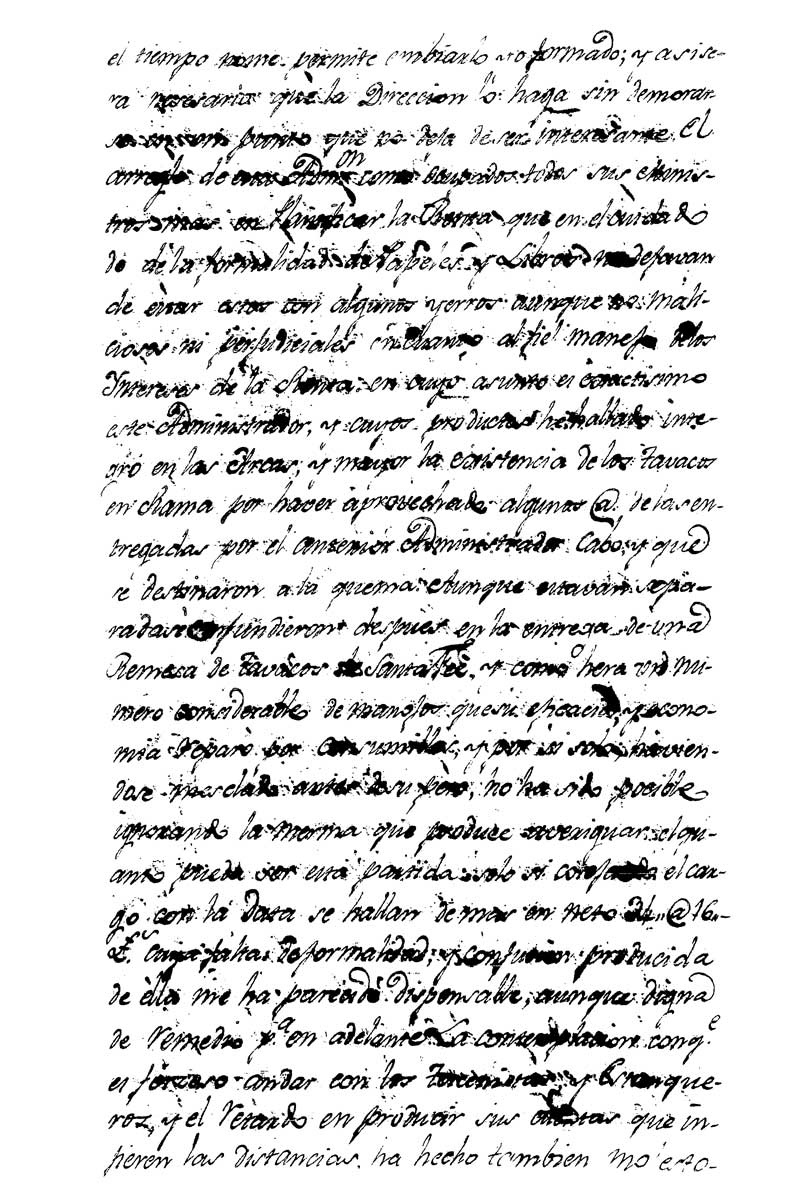 el tiempo nome permite embiarlo yo formado; y asi se-
ra nesesario què la Direccion lo haga sin demorar
se en un punto que no deja deser interesante. El
arreglo de esta Admon como ocupados todos sus Minis-
tros mas en Planificar la Renta que en el cuidado
de dela formalidad de Papeles y Libros no dejavan
de estar estos con algunos yerros aunque no mali-
ciosos ni perjudiciales en cuanto al fiel manejo delos
Intereses de la Renta en cuyo asunto es exactisimo
este Administrador, y cuyos productos he hallado inte-
gro en las Arcas, y mayor la existencia de los Tavacos
en Rama por haver aprovechado algunas @ de las en-
tregadas por el anterior Administrador Cabo, y que
se destinaron a la quema. Aunque estavan sepa-
radas se confundieron despues en la entrega de una
Remesa de Tavacos de Santa Feè, y como hera un nu-
mero considerable de manojos que su eficacia, y econo-
mia reparò por consumirlos, y por si solo havien-
dose mesclado antes de su pèro, no ha sido posible
ignorando la merma que produce averiguar el qu-
anto pueda ser esta partida: solo si cotejada el car-
go con la Data se hallan demas en neto @ 16,,
ts. cuya falta de formalidad, y confucion producida
de èlla me ha parecido dispensable, aunque digna
de remedio pa en adelante. La contemplacion conqe
es forzoso andar con los Tercenistas, y Estanque-
roz, y el retardo en producir sus cuentas que in-
fieren las distancias. ha hecho tambien mo esto-